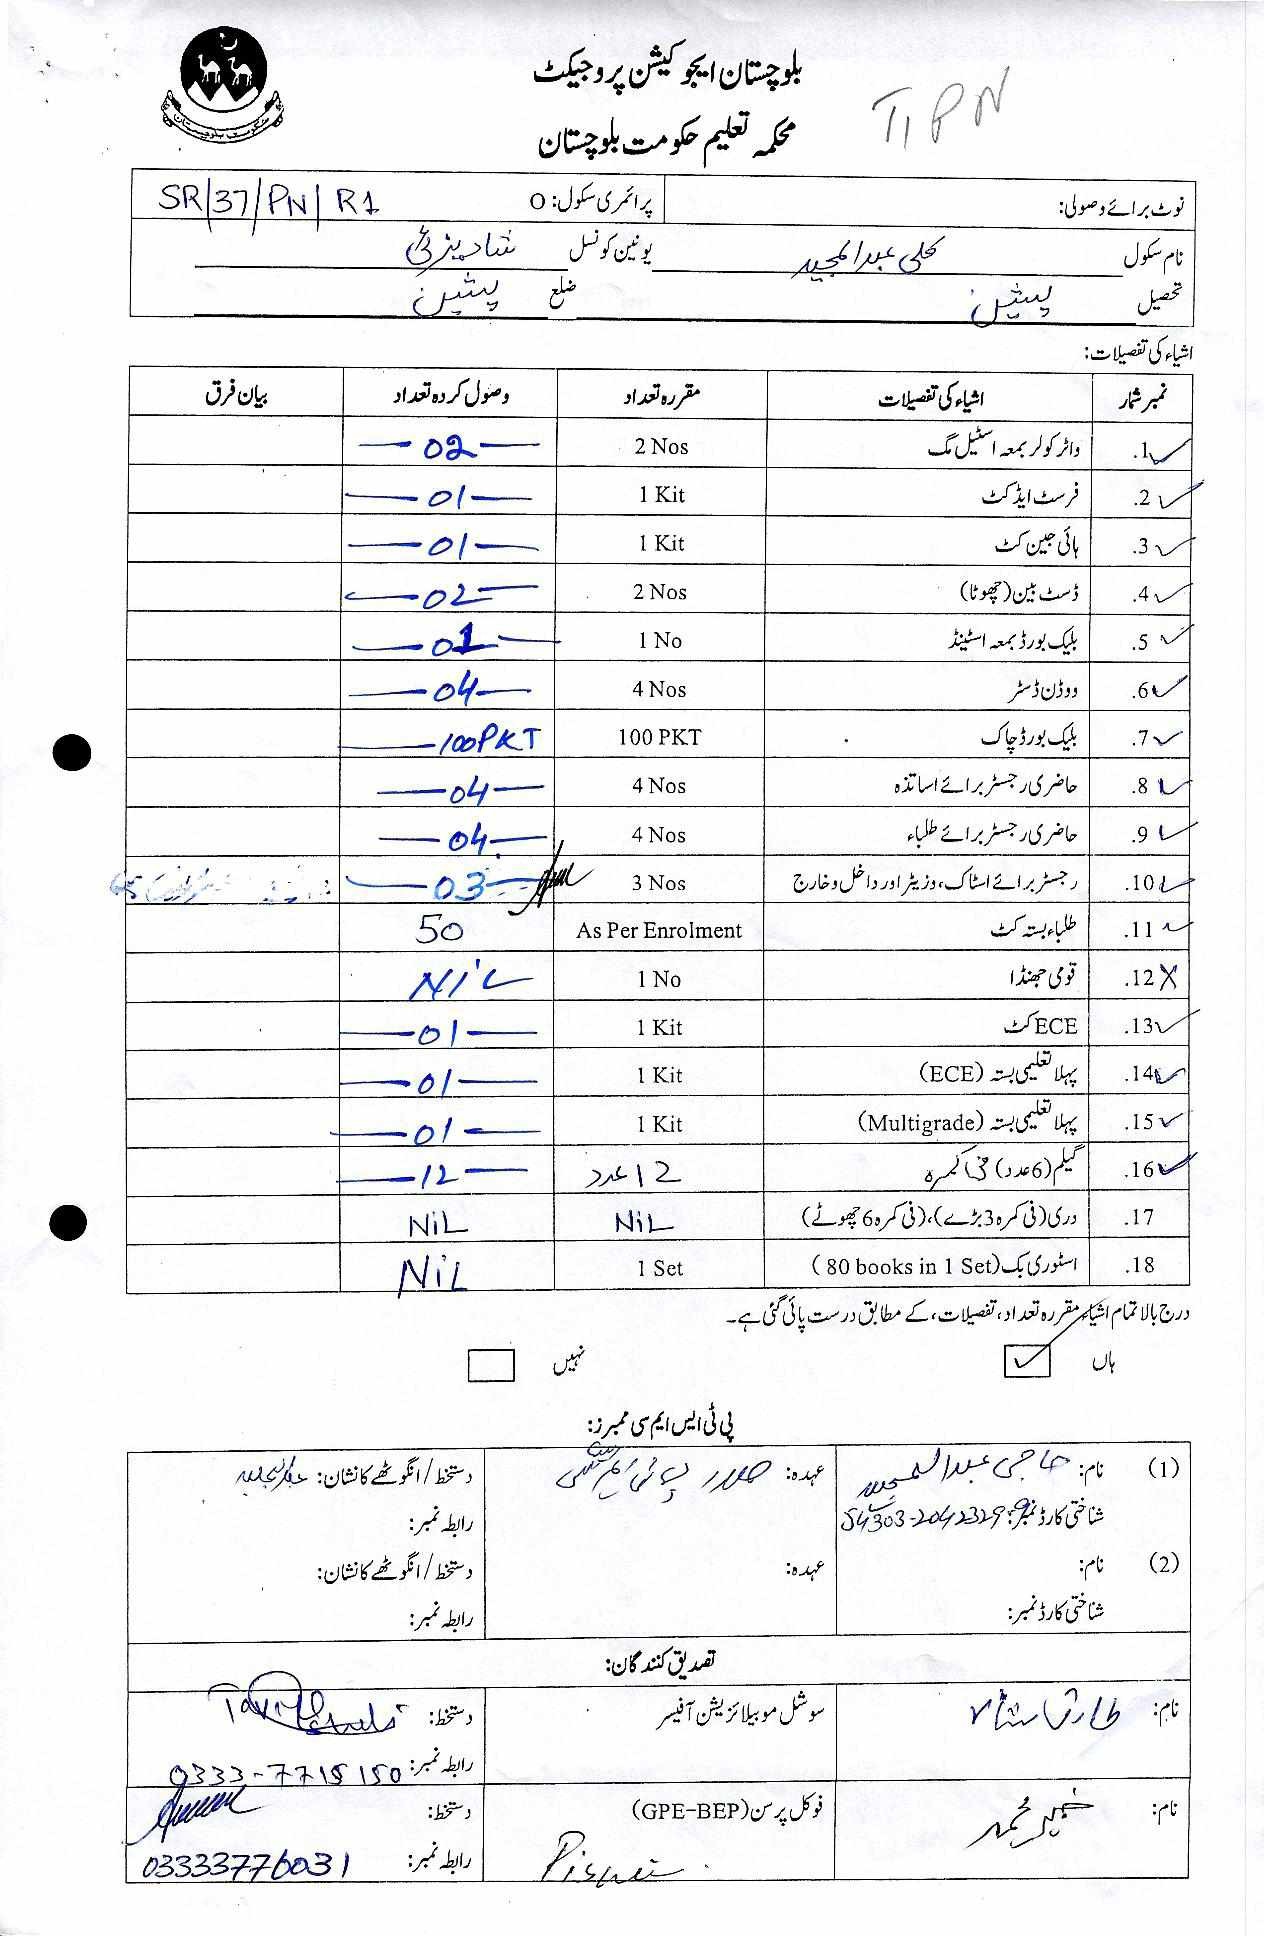 بلوچستان ایجوکیشن پروجیکٹ
محکمہ تعلیم حکومت بلوچستان
حکومت بلوچستان
TIPN
نوٹ برائے وصولی: پرائمری سکول: O SR/37/PN/R1
نام سکول کلی عبدالمجید یونین کونسل شادیزئی
تحصیل پشین ضلع پشین
اشیاء کی تفصیلات:
نمبر شمار اشیاء کی تفصیلات مقررہ تعداد وصول کردہ تعداد بیان فرق
1. واٹر کولر بمعہ اسٹیل مگ 2 Nos 02
2. فرسٹ ایڈ کٹ 1 Kit 01
3. ہائی جین کٹ 1 Kit 01
4. ڈسٹ بین (چھوٹا) 2 Nos 02
5. بلیک بورڈ بمعہ اسٹینڈ 1 No 01
6. ووڈن ڈسٹر 4 Nos 04
7. بلیک بورڈ چاک 100 PKT 100 PKT
8. حاضری رجسٹر برائے اساتذہ 4 Nos 04
9. حاضری رجسٹر برائے طلباء 4 Nos 04
10. رجسٹر برائے اسٹاک، وزیٹر اور داخل و خارج 3 Nos 03
11. طلباء بستہ کٹ As Per Enrolment 50
12. قومی جھنڈا 1 No NIL
13. ECE کٹ 1 Kit 01
14. پہلا تعلیمی بستہ (ECE) 1 Kit 01
15. پہلا تعلیمی بستہ (Multigrade) 1 Kit 01
16. گلیم (6 عدد) فی کمرہ 12 عدد 12
17. دری (فی کمرہ 3 بڑے)، (فی کمرہ 6 چھوٹے) NiL NiL
18. اسٹوری بک (80 books in 1 Set) 1 Set NiL
درج بالا تمام اشیاء مقررہ تعداد، تفصیلات، کے مطابق درست پائی گئی ہے۔
ہاں ✓ نہیں
پی ٹی ایس ایم سی ممبرز:
(1) نام: حاجی عبدالمجید عہدہ: صدر پی ٹی ایم سی دستخط / انگوٹھے کا نشان: عبدالمجید
شناختی کارڈ نمبر: 54303-2042329-9 رابطہ نمبر:
(2) نام: عہدہ: دستخط / انگوٹھے کا نشان:
شناختی کارڈ نمبر: رابطہ نمبر:
تصدیق کنندگان:
نام: طارق شاہ سوشل موبیلائزیشن آفیسر دستخط:
رابطہ نمبر: 0333-7715150
نام: ضمیر محمد فوکل پرسن (GPE-BEP) دستخط:
Pishin رابطہ نمبر: 03333776031